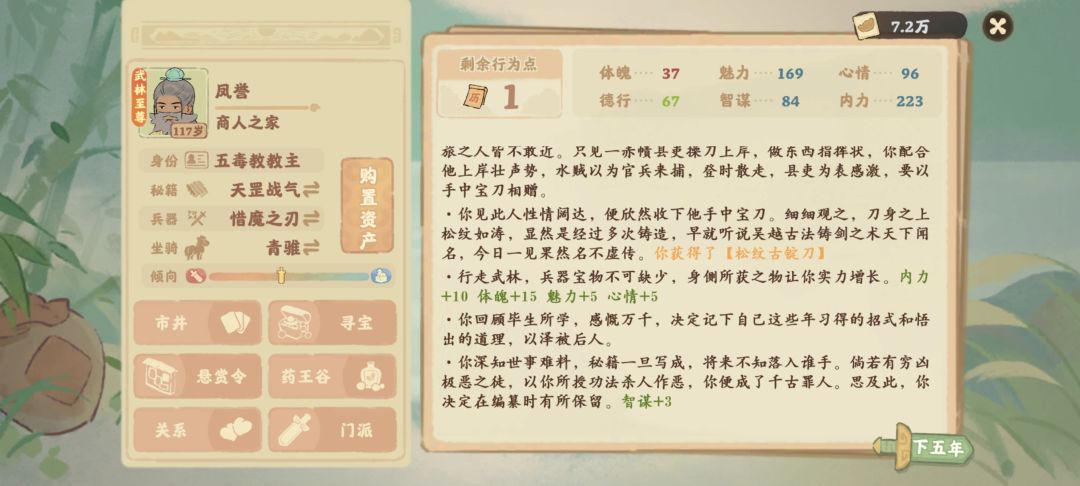 7.2万
武林至尊
117岁
凤誉
商人之家
身份 五毒教教主
秘籍 天罡战气
兵器 惜魔之刃
坐骑 青骓
倾向
购置资产
市井
寻宝
悬赏令
药王谷
关系
门派
剩余行为点
历
1
体魄 37 魅力 169 心情 96
德行 67 智谋 84 内力 223
旅之人皆不敢近。只见一赤帻县吏操刀上岸，做东西指挥状，你配合
他上岸壮声势，水贼以为官兵来捕，登时散走，县吏为表感激，要以
手中宝刀相赠。
·你见此人性情阔达，便欣然收下他手中宝刀。细细观之，刀身之上
松纹如涛，显然是经过多次铸造，早就听说吴越古法铸剑之术天下闻
名，今日一见果然名不虚传。你获得了【松纹古锭刀】
·行走武林，兵器宝物不可缺少，身侧所获之物让你实力增长。内力
+10 体魄+15 魅力+5 心情+5
·你回顾毕生所学，感慨万千，决定记下自己这些年习得的招式和悟
出的道理，以泽被后人。
·你深知世事难料，秘籍一旦写成，将来不知落入谁手。倘若有穷凶
极恶之徒，以你所授功法杀人作恶，你便成了千古罪人。思及此，你
决定在编纂时有所保留。智谋+3
下五年